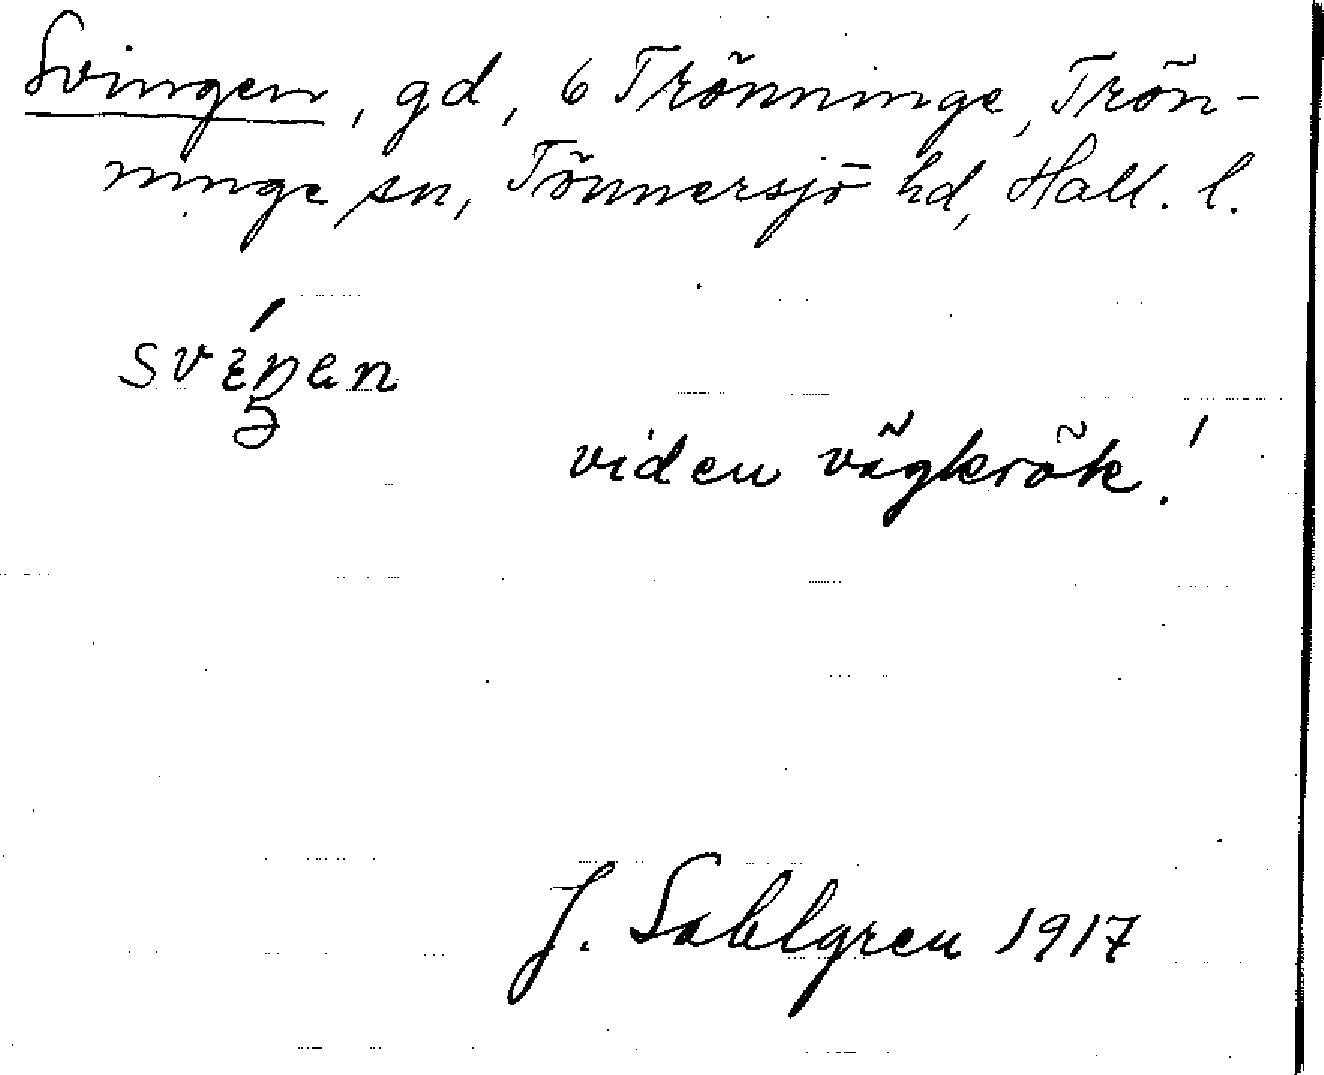 Svingen, gd, 6 Trönninge, Trön-
ninge sn, Tönnersjö hd, Hall. l.
viden vägkrök!
J. Sahlgren 1917